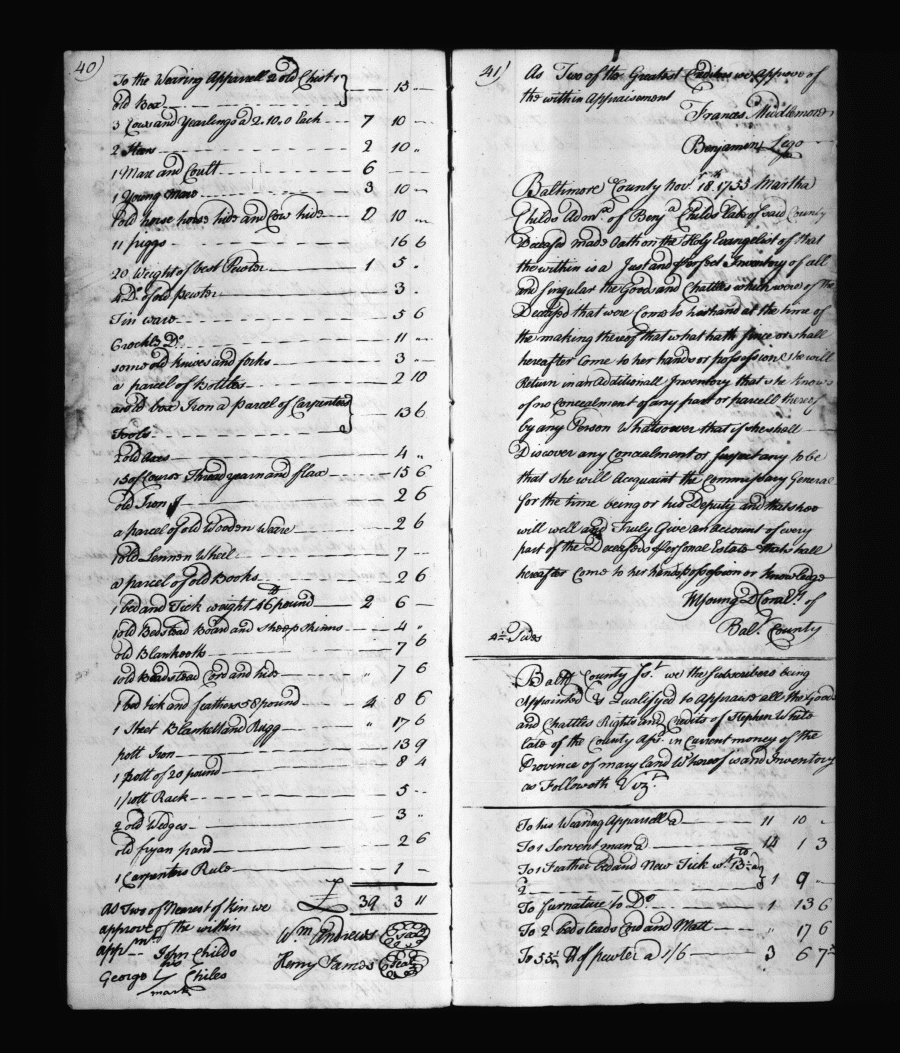 40)
To the Wearing Apparrell 2 old Chist 1
old Box 15 "
3 Cows and Yearlings a 2.10.0 Each 7 10 "
2 Steers 2 10 "
1 Mare and Coult 6
1 Young Mare 3 10 "
1 old horse horse hide and Cow hide 0 10 "
11 piggs 16 6
20 Weight of best Pewter 1 5 "
4 Do of old pewter 3 "
Tin ware 5 6
Crockes Do 11 "
some old knives and forks 3 "
a parcel of Bottles 2 10
an old box Iron a Parcel of Carpenters
Tools 13 6
2 old axes 4 "
15 of Course Thread yearn and flax 15 6
old Iron 2 6
a parcel of old Wooden Ware 2 6
1 old Lennen Wheel 7 "
a parcel of old Books 2 6
1 bed and Tick weight 46 pound 2 6 "
1 old Bedstead Board and Sheep Skinns 4 "
old Blanketts 7 6
1 old Beadstead Cord and hide " 7 6
1 bed tick and feathers 58 pound 4 8 6
1 Sheet Blankett and Rugg " 17 6
pott Iron 13 9
1 pott of 20 pound 8 4
1 pott Rack 5 "
2 old Wedges 3 "
old fryan pand 2 6
1 Carpenters Rule 1 "
£ 39 3 11
As Two of Nearest of Kin we
approve of the within
appmt
John Childs
George his Chiles
mark
Wm Andrews Seal
Henry James Seal
41)
As Two of the Greatest Creditors we Approve of
the within Appraisement
Frances Middlemore
Benjamin Lego
Baltimore County Novr 18th 1753 Martha
Childs Admrx of Benja Childs late of said County
Deceased made Oath on the Holy Evangelist of that
the within is a Just and Perfect Inventory of all
and singular the Goods and Chattles which were of the
Deceased that were Come to her hand at the time of
the making thereof that what hath since or shall
hereafter Come to her hands or possession she will
Return in an Additionall Inventory that she knows
of no Concealment of any part or parcell thereof
by any Person Whatsoever that if she shall
Discover any Concealment or suspect any to be
that she will Acquaint the Commissary General
for the time being or his Deputy and that shee
will well and Truly Give an account of every
part of the Deceaseds Personal Estate that shall
hereafter Come to her hands possession or knowledge
W Young D Comry of
Balt County
2 Sides
Balt County Sst. we the Subscribers being
Appointed & Qualifyed to Appraise all the Goods
and Chattles Rights and Credits of Stephen White
late of the County afsd in Current money of the
Province of maryland Whereof is and Inventory
as Followeth Vizt
To his Wearing Apparrell a 11 10 "
To 1 Servent man a 14 1 3
To 1 Feather bed and New Tick wt
1 9 "
To furnature to Do 1 13 6
To 2 bedsteads Cord and Matt " 17 6
of pewter a 1/6 3 6 7½